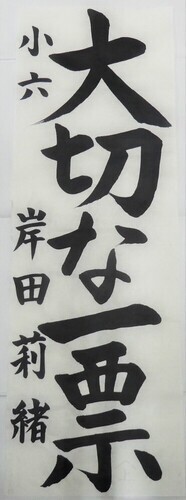 大切な一票
小六
岸田莉緒